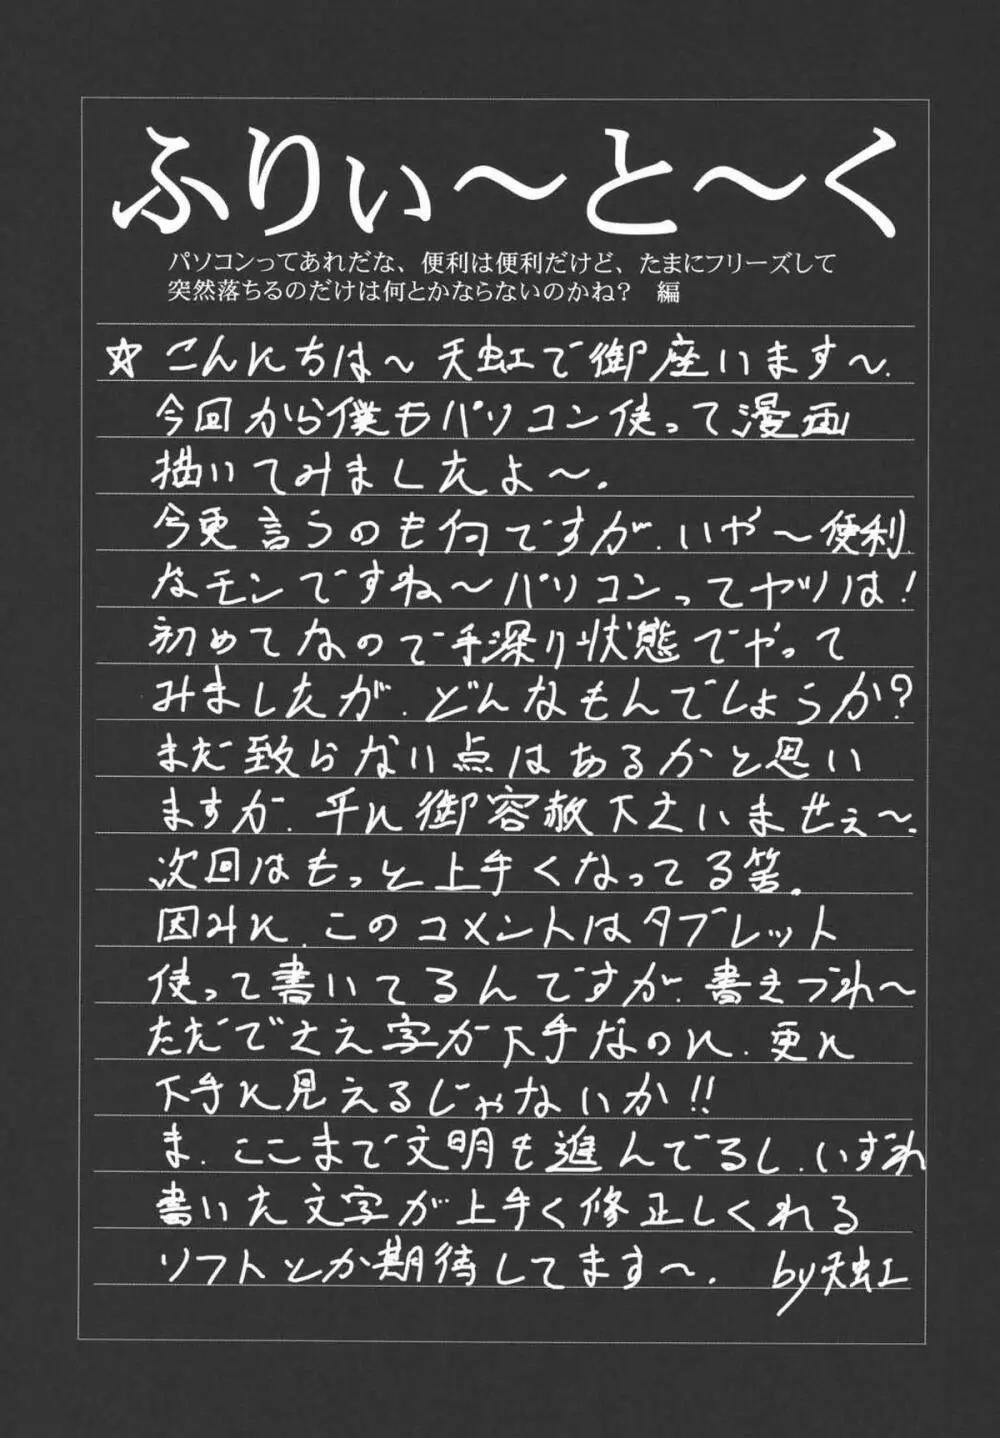 ふりぃ～と～く
パソコンってあれだな、便利は便利だけど、たまにフリーズして
突然落ちるのだけは何とかならないのかね？　編
☆こんにちは～天虹で御座います～.
今回から僕もパソコン使って漫画
描いてみましたよ～.
今更言うのも何ですが.いや～便利.
なモンですね～パソコンってヤツは!
初めてなので手深り状態でやって
みましたが.どんなもんでしょうか?
まだ致らない点はあるかと思い
ますが.平に御容赦下さいませぇ～.
次回はもっと上手くなってる筈.
因みに.このコメントはタブレット
使って書いてるんですが.書きづれ～
ただでさえ字が下手なのに.更に
下手に見えるじゃないか!!
ま.ここまで文明も進んでるし.いずれ
書いた文字が上手く修正しくれる
ソフトとか期待してます～.　by天虹